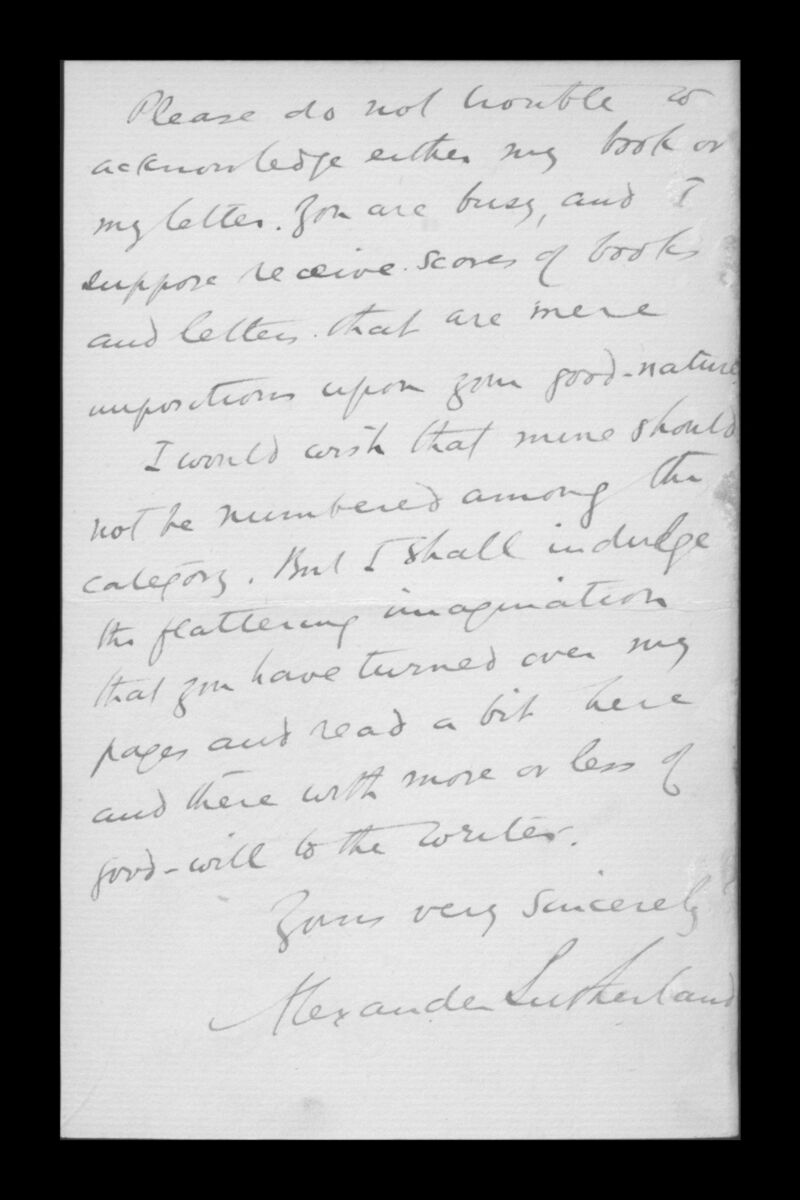 Please do not trouble to
acknowledge either my book or
my letter. You are busy, and I
suppose receive scores of books
and letters that are mere
impositions upon your good-nature.
I would wish that mine should
not be numbered among the
category. But I shall indulge
the flattering imagination
that you have turned over my
pages and read a bit here
and there with more or less of
good-will to the writer.
Yours very sincerely
Alexander Sutherland